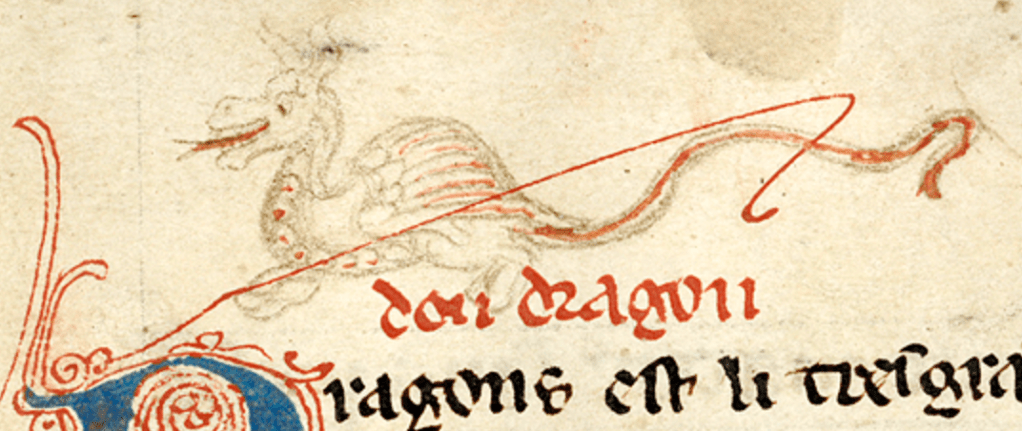 dou dragon
Dragons est li tresgra